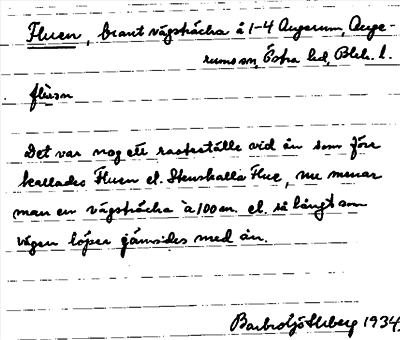 Fluen, brant vägsträcka å 1-4 Augerum, Auge-
rums sn, Östra hd, Blek. l.
flʉ̀ən
Det var nog ett rasteställe vid ån som förr
kallades Fluen el. Stenskalla Flue, nu menar
man en vägsträcka à 100 m. el. så långt som
vägen löper jämsides med ån.
Barbro Sjöstberg 1934